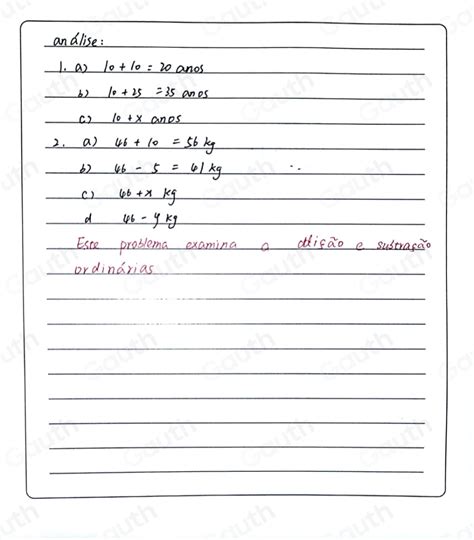 análise:
1. a) 10 + 10 = 20 anos
b) 10 + 25 = 35 anos
c) 10 + x anos
2. a) 46 + 10 = 56 kg
b) 46 - 5 = 41 kg
c) 46 + x kg
d 46 - y kg
Este problema examina a adição e subtração
ordinárias